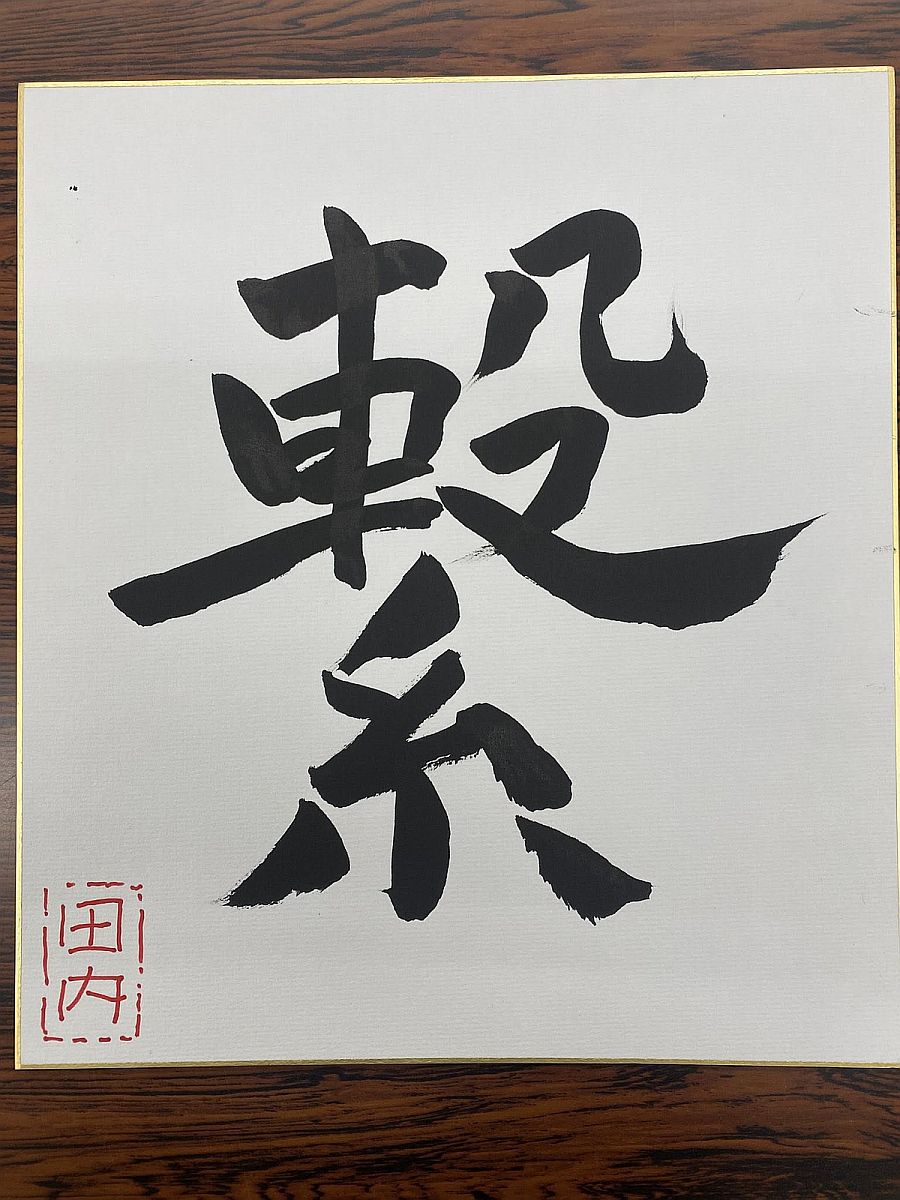 繋
田内